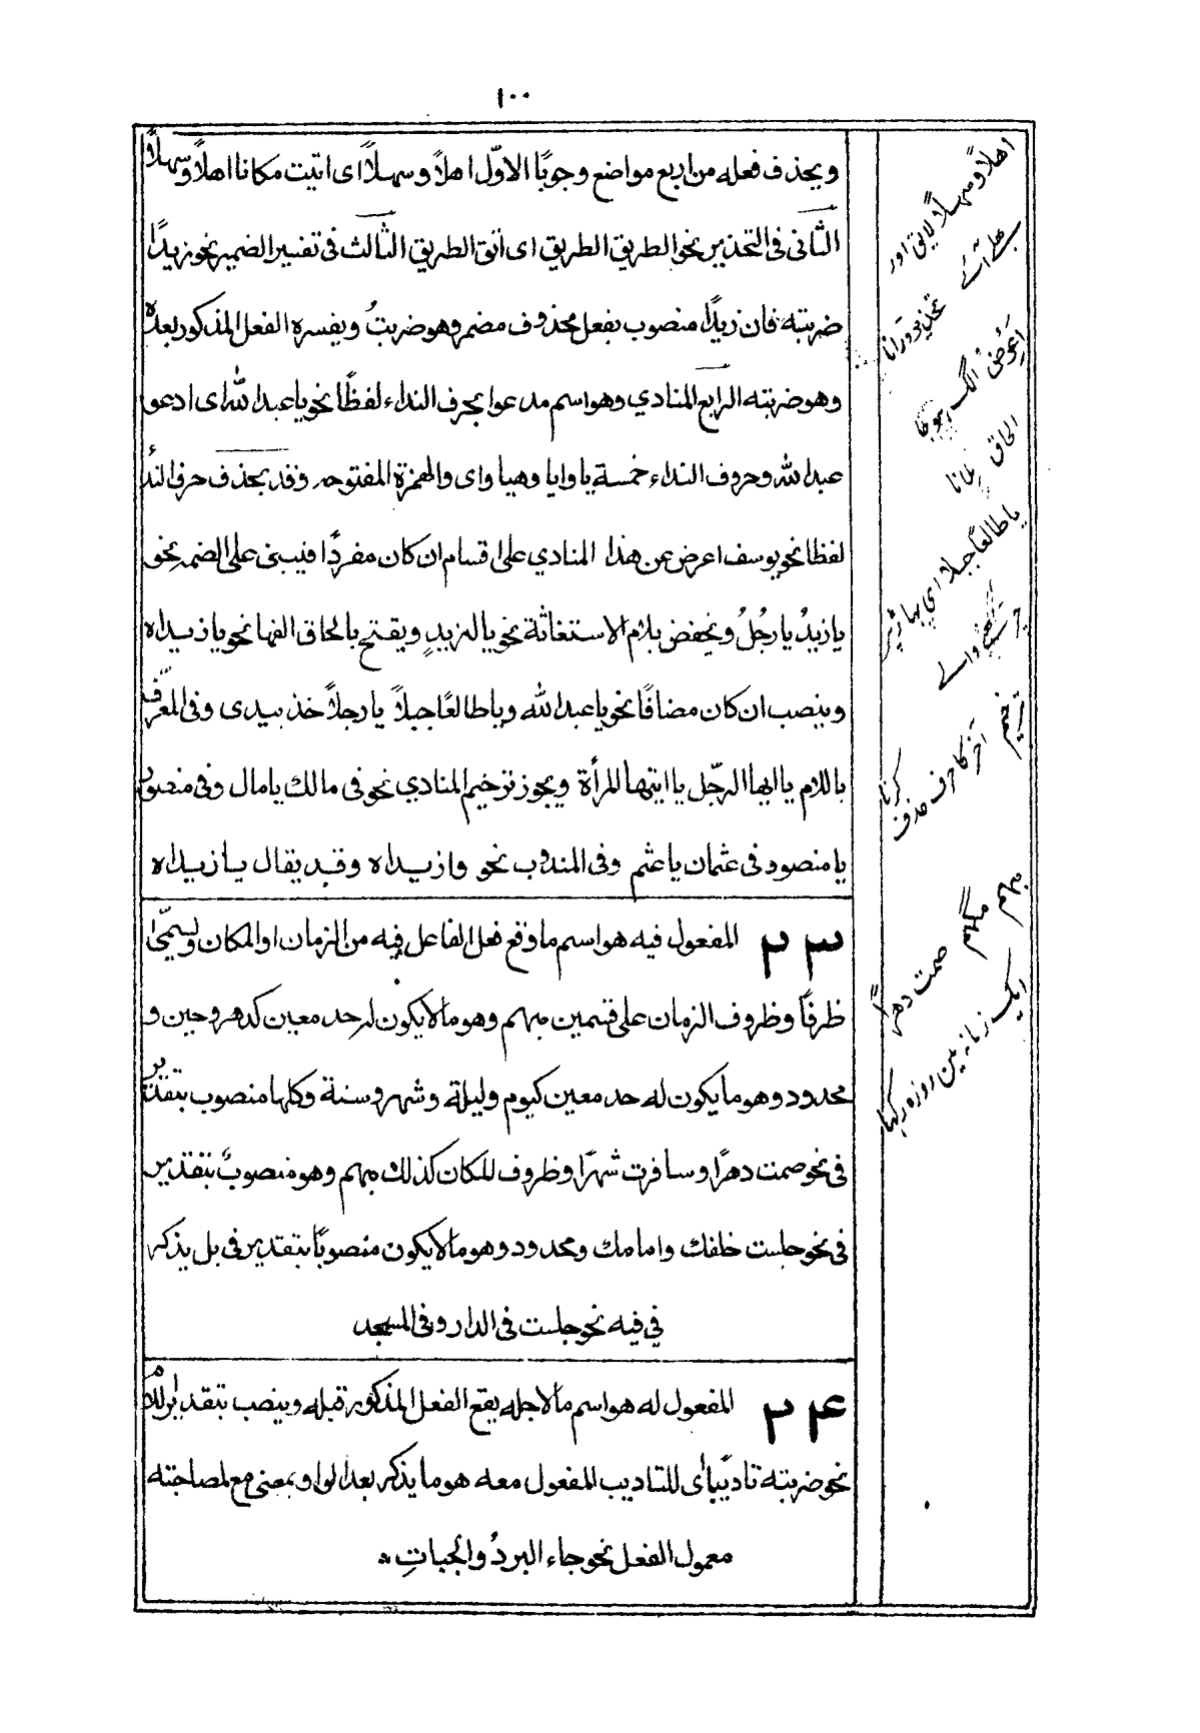 ١٠٠
ويحذف فعله من اربع مواضع وجوبًا الاوّل اهلاً وسهلاً اى اتيت مكانا اهلاً وسهلاً
الثانى فى التحذير نحو الطريق الطريق اى اتق الطريق الثالث فى تفسير الضمير نحو زيدًا
ضربته فان زيدًا منصوب بفعل محذوف مضمر وهو ضربتُ ويفسره الفعل المذكور بعده
وهو ضربته الرابع المنادي وهو اسم مدعوا بحرف النداء لفظًا نحو يا عبدالله اى ادعو
عبدالله وحروف النداء خمسة يا وايا وهيا واى والهمزة المفتوحه وقد يحذف حرف الندا
لفظا نحو يوسف اعرض عن هذا المنادي على اقسام ان كان مفردًا فيبنى على الضم نحو
يا زيدُ يا رجُلُ ويخفض بلام الاستغاثة نحو يا لزيدٍ ويفتح بالحاق الفها نحو يا زيداه
وينصب ان كان مضافًا نحو يا عبدالله ويا طالعًا جبلاً يا رجلاً خذ بيدى وفى المعرّف
باللام يا ايها الرّجل يا ايتها المرأة ويجوز ترخيم المنادي نحو فى مالك يا مال وفى منصور
يا منصو وفى عثمان يا عثم وفى المندوب نحو وازيداه وقد يقال يا زيداه
٢٣ المفعول فيه هو اسم ما وقع فعل الفاعل فيه من الزمان او المكان ويسمّى
ظرفًا وظروف الزمان على قسمين مبهم وهو ما لا يكون له حد معين كدهر وحين و
محدود وهو ما يكون له حد معين كيوم وليلة وشهر وسنة وكلها منصوب بتقدير
فى نحو صمت دهرًا وسافرت شهرًا وظروف المكان كذلك مبهم وهو منصوبٌ بتقدير
فى نحو جلست خلفك وامامك ومحدود وهو ما لا يكون منصوبًا بتقدير فى بل يذكر
في فيه نحو جلست فى الدار وفى المسجد
٢۴ المفعول له هو اسم ما لاجله يقع الفعل المذكور قبله وينصب بتقدير اللام
نحو ضربته تاديبًا اى للتاديب المفعول معه هو ما يذكر بعد الواو بمعنى مع لمصاحبته
معمول الفعل نحو جاء البردُ والجباتِ
اهلاً وسهلاً لایق اور
بھلے آئے
تحذیر ڈرانا
اعرض الگ ہوجا
الحاق ملانا
یا طالعًا جبلا اے پہاڑ پر
چڑھنے والے
ترخیم آخر کا حرف حذف
کرنا
مبهم
صمت دهرًا
ایک زمانہ میں روزہ رکھا